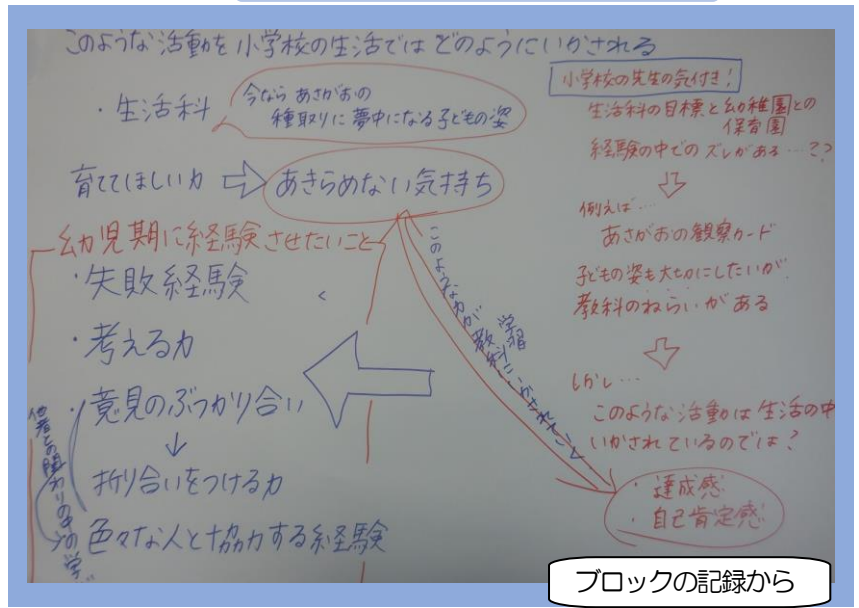 このような活動を小学校の生活ではどのようにいかされる
・生活科
今なら あさがおの
種取りに夢中になる子どもの姿
育ててほしい力 ⇨ あきらめない気持ち
幼児期に経験させたいこと
・失敗経験
・考える力
・意見のぶつかり合い
↓
折り合いをつける力
色々な人と協力する経験
他者との関わりの中の学び
このような力が
学習
教科にいかされていく
小学校の先生の気付き!
生活科の目標と幼稚園との
保育園
経験の中でのズレがある…??
例えば…
あさがおの観察カード
子どもの姿も大切にしたいが
教科のねらいがある
しかし…
このような活動は生活の中
いかされているのでは?
・達成感
・自己肯定感
ブロックの記録から